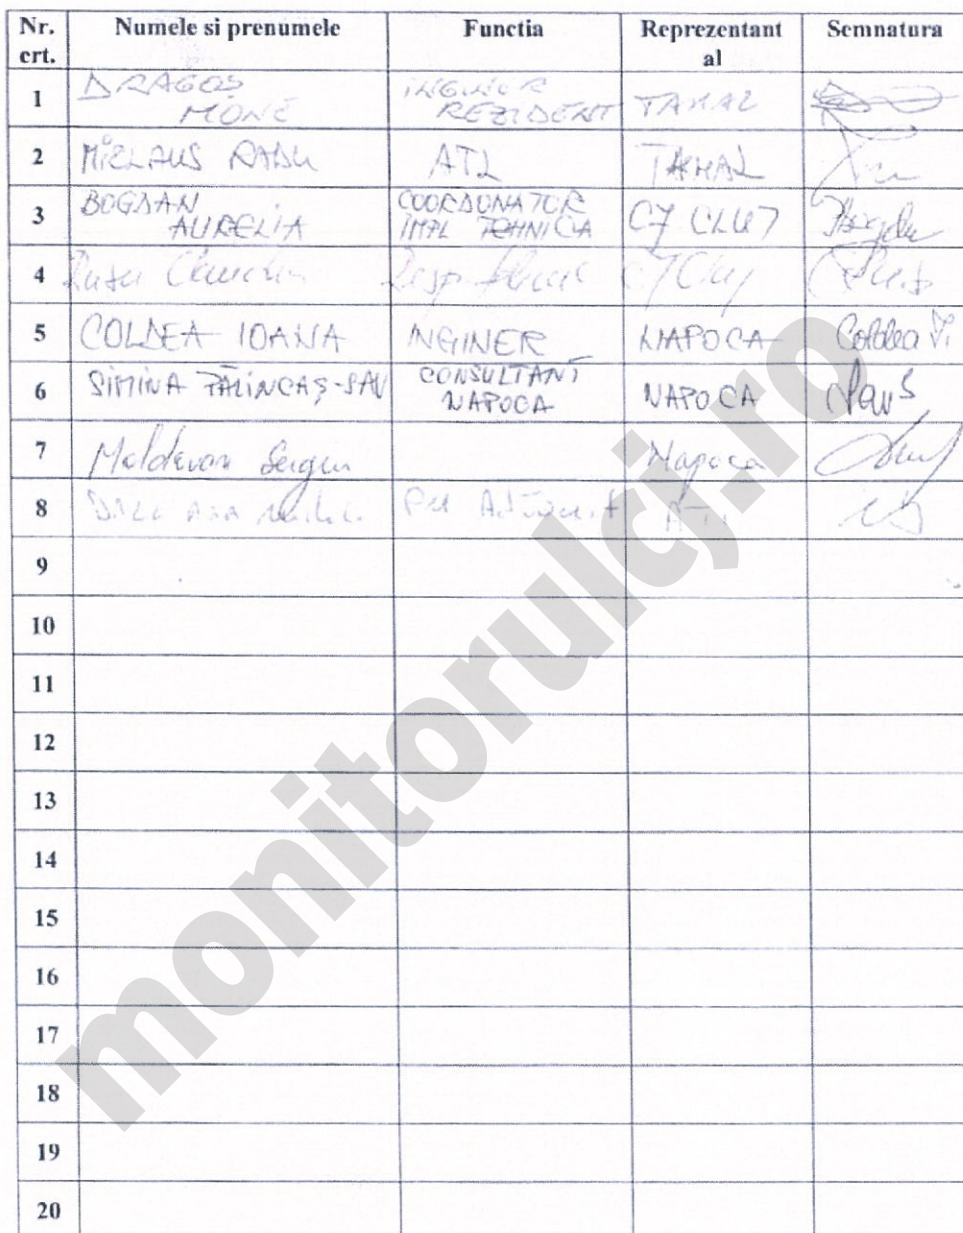 Nr. crt. Numele si prenumele Functia Reprezentant al Semnatura
1 DRAGOS MONE INGINER REZIDENT TAHAL
2 MICLAUS RADU ATL TAHAL
3 BOGDAN AURELIA COORDONATOR IMPL TEHNICA CJ CLUJ Bogdan
4 Rusu Claudia Resp CJ Cluj
5 COLDEA IOANA INGINER NAPOCA Coldea I.
6 SIMINA PĂLINCAȘ-SAV CONSULTANT NAPOCA NAPOCA
7 Moldovan Sergiu Napoca
8 PM Adjunct
9
10
11
12
13
14
15
16
17
18
19
20
monitorulcj.ro